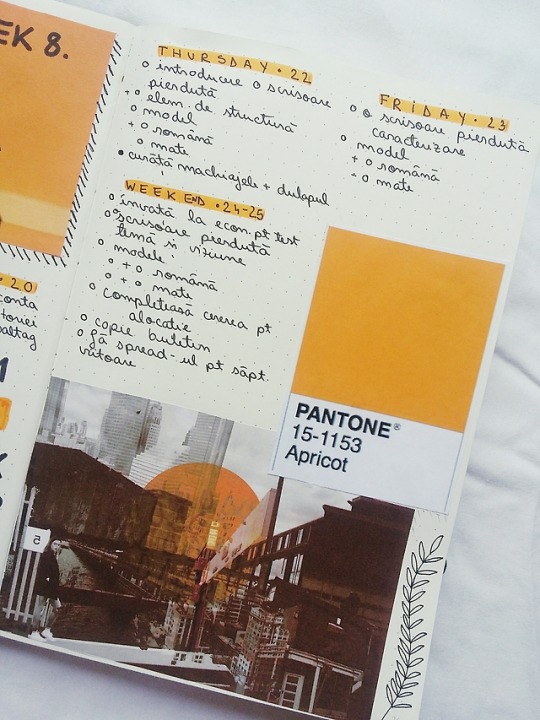 EK 8.
• 20
conta
toriei
baltag
THURSDAY • 22
o introducere o scrisoare
pierdută
o elem. de structură
o model
+ o română
o mate
• curăță machiajele + dulapul
WEEKEND • 24-25
o învață la econ. pt test
o scrisoare pierdută
temă și viziune
o modele:
o + o română
o + o mate
o completează cererea pt
alocație
o copie buletin
o fă spread-ul pt săpt.
viitoare
FRIDAY • 23
o o scrisoare pierdută
caracterizare
o model
+ o română
+ o mate
PANTONE®
15-1153
Apricot
5